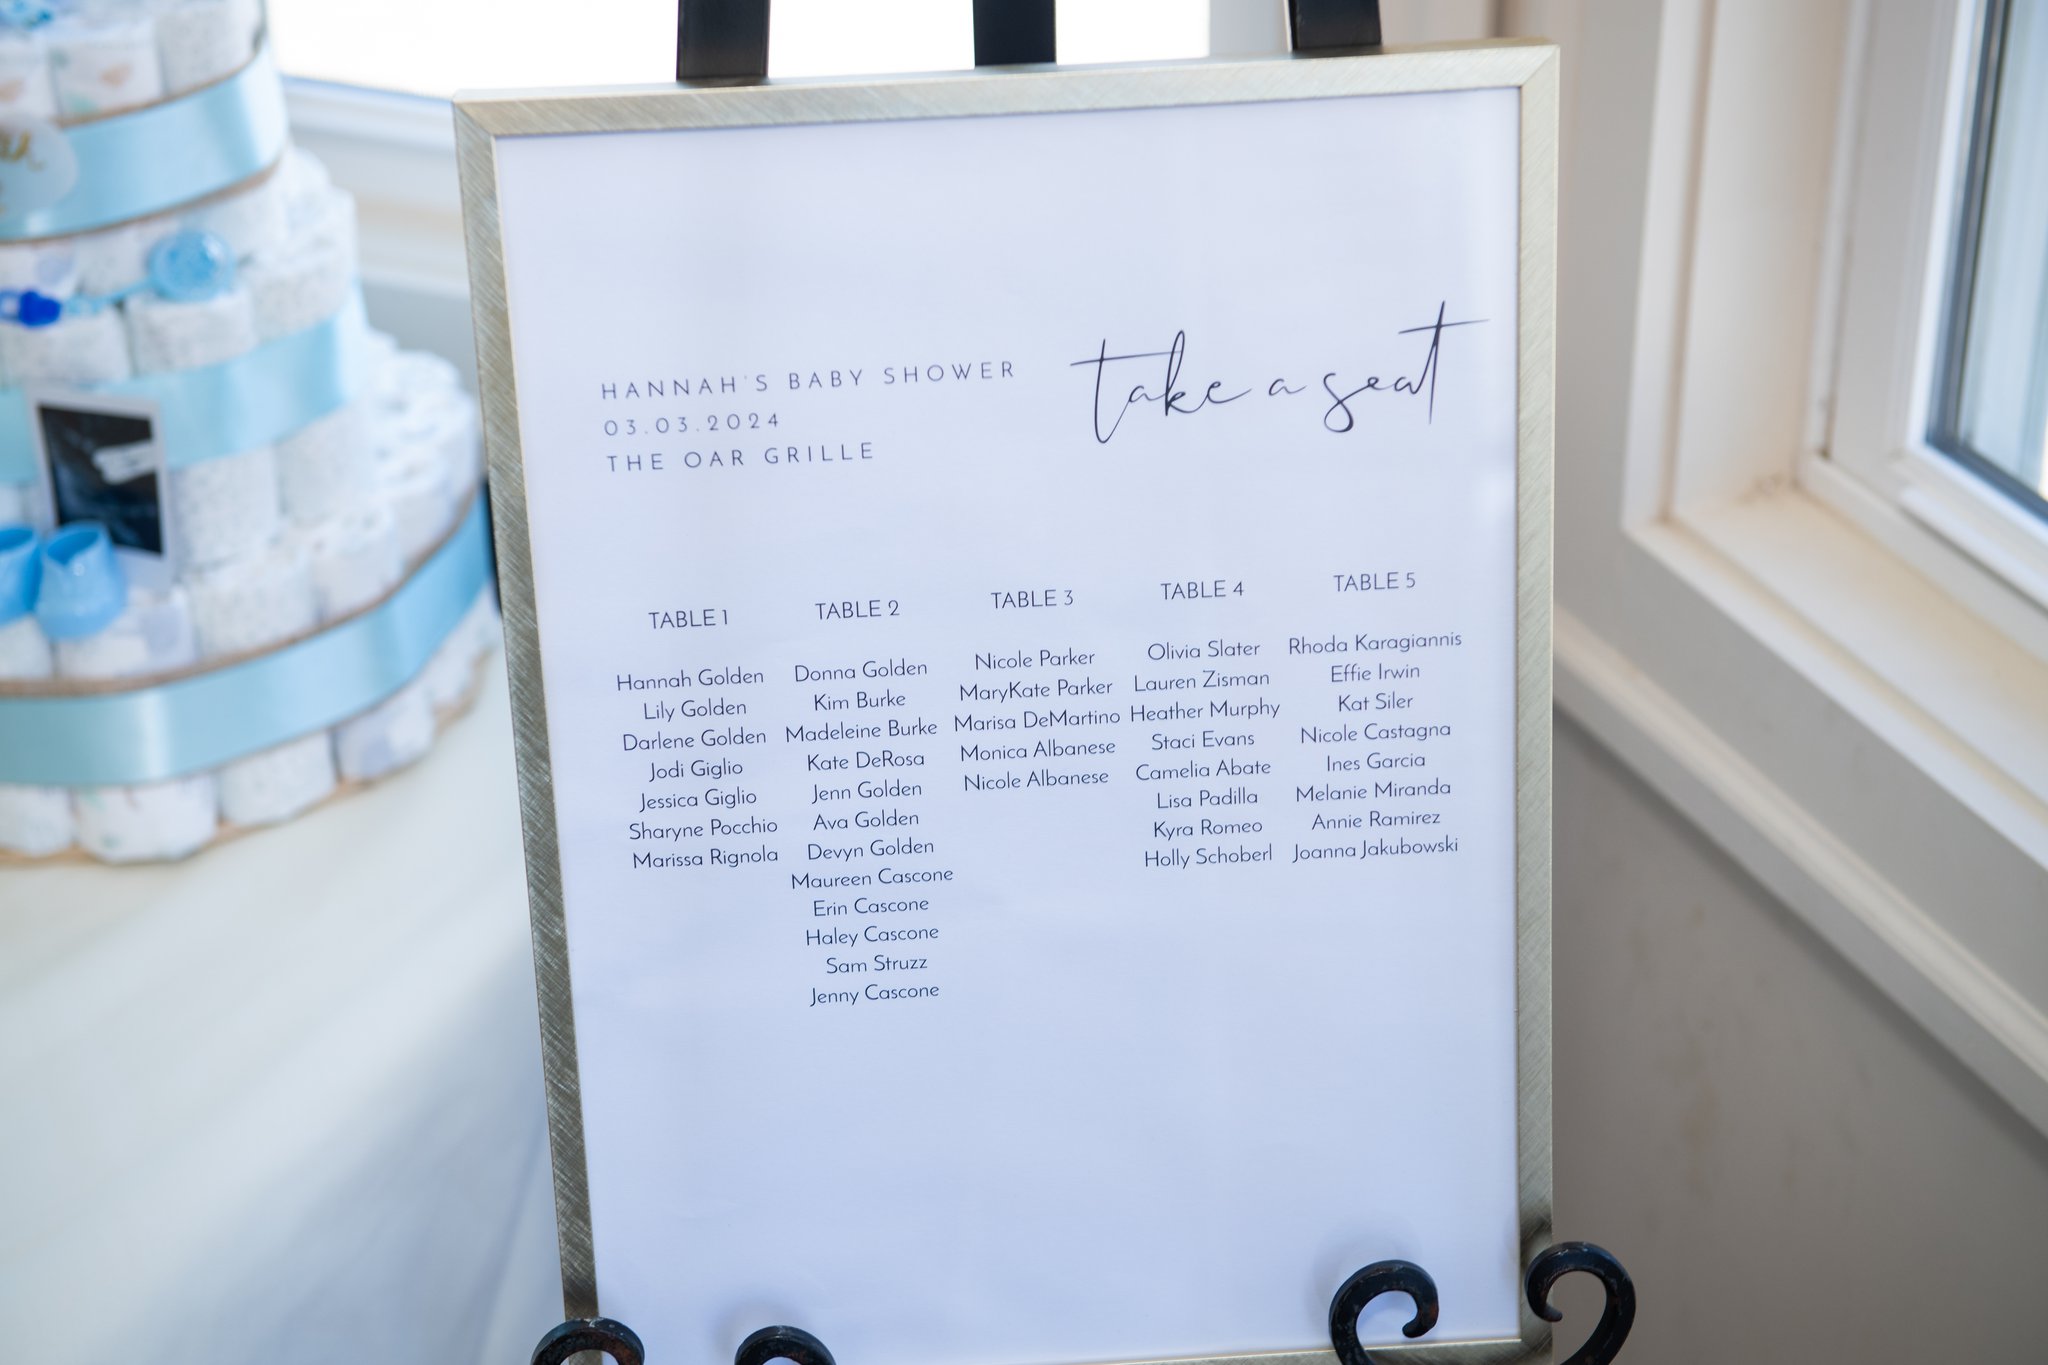 HANNAH'S BABY SHOWER
03.03.2024
THE OAR GRILLE
take a seat
TABLE 1
Hannah Golden
Lily Golden
Darlene Golden
Jodi Giglio
Jessica Giglio
Sharyne Pocchio
Marissa Rignola
TABLE 2
Donna Golden
Kim Burke
Madeleine Burke
Kate DeRosa
Jenn Golden
Ava Golden
Devyn Golden
Maureen Cascone
Erin Cascone
Haley Cascone
Sam Struzz
Jenny Cascone
TABLE 3
Nicole Parker
MaryKate Parker
Marisa DeMartino
Monica Albanese
Nicole Albanese
TABLE 4
Olivia Slater
Lauren Zisman
Heather Murphy
Staci Evans
Camelia Abate
Lisa Padilla
Kyra Romeo
Holly Schoberl
TABLE 5
Rhoda Karagiannis
Effie Irwin
Kat Siler
Nicole Castagna
Ines Garcia
Melanie Miranda
Annie Ramirez
Joanna Jakubowski